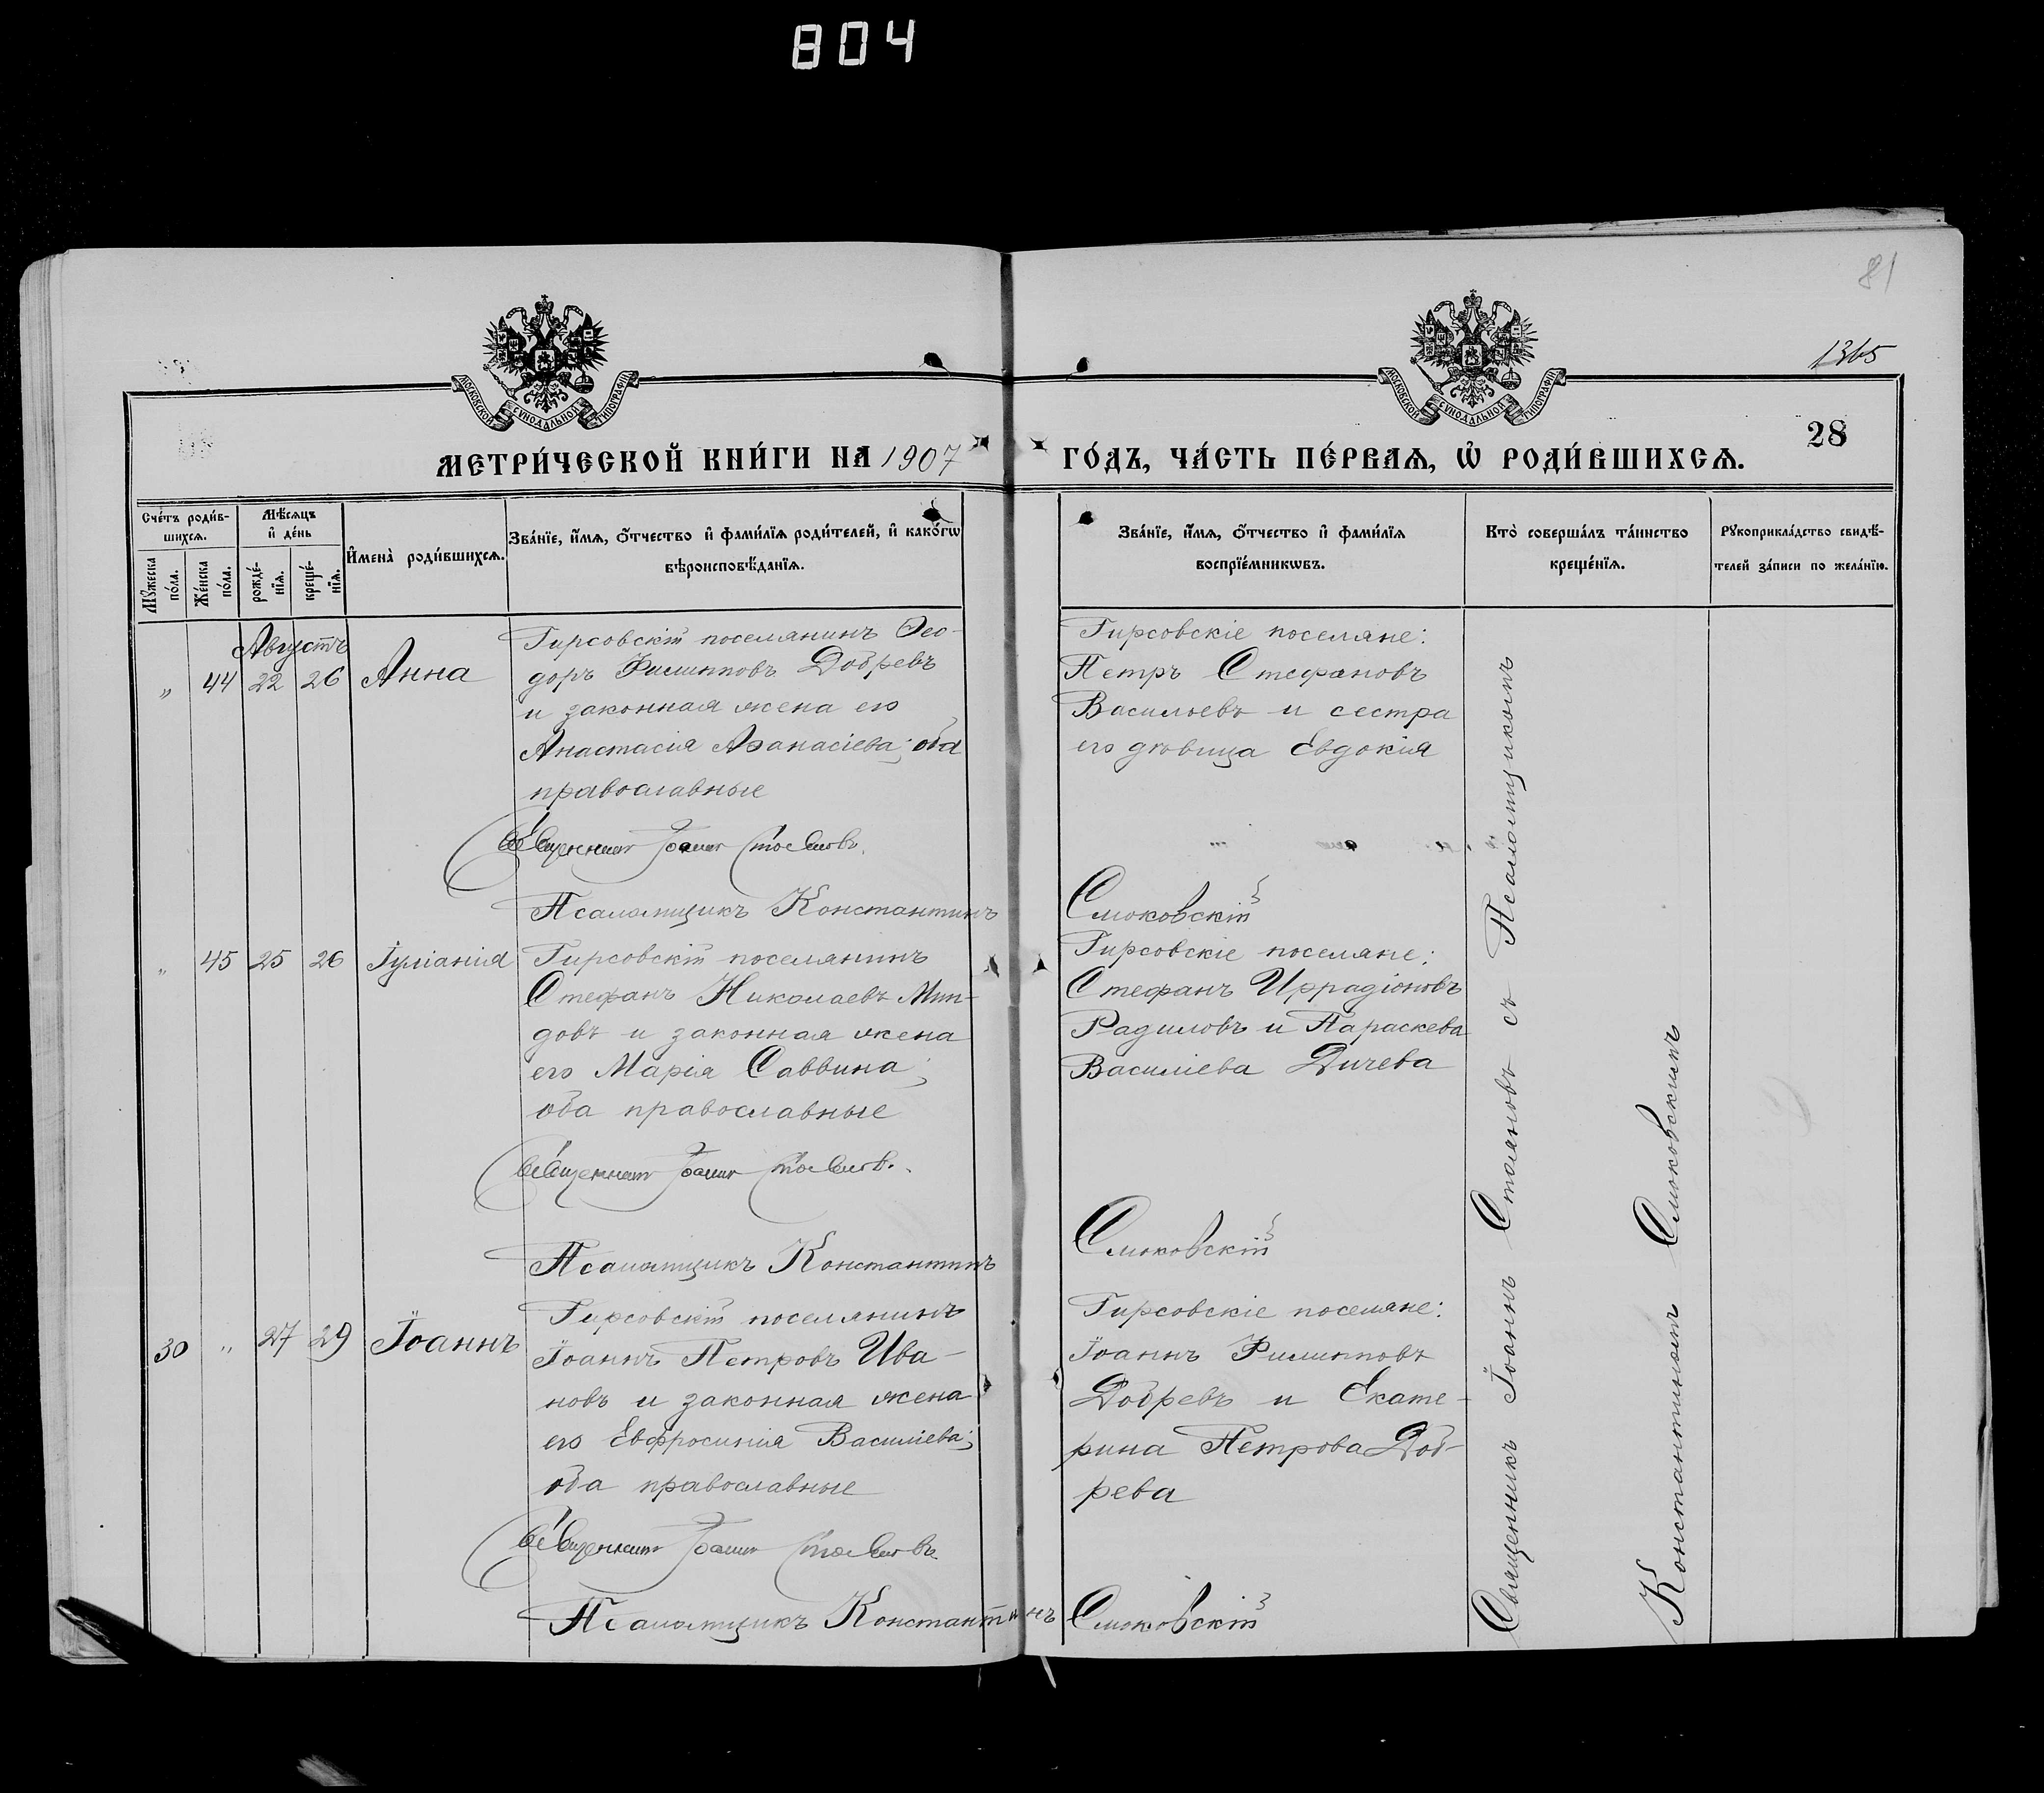 804
81
1365
28
МОСКОВСКОЙ СѴНОДАЛЬНОЙ ТИПОГРАФІИ
МОСКОВСКОЙ СѴНОДАЛЬНОЙ ТИПОГРАФІИ
МЕТРИ́ЧЕСКОЙ КНИ́ГИ НА 1907
ГО́ДЪ, ЧА́СТЬ ПЕ́РВАѦ, Ѡ҆ РОДИ́ВШИХСѦ.
Сче́тъ роди́в-
шихсѧ.
Мꙋ́жеска
по́ла.
Же́нска
по́ла.
Мѣ́сѧцъ
и҆ де́нь
рожде́-
нїѧ.
креще́-
нїѧ.
И҆мена̀ роди́вшихсѧ.
Зва́нїе, и҆́мѧ, ѻ҆́тчество и҆ фами́лїѧ роди́телей, и҆ како́гѡ
вѣроисповѣ́данїѧ.
Зва́нїе, и҆́мѧ, ѻ҆́тчество и҆ фами́лїѧ
воспрїе́мникѡвъ.
Кто̀ соверша́лъ та́инство
креще́нїѧ.
Рꙋкоприкла́дство свидѣ́-
телей за́писи по жела́нїю.
Августъ
„ 44 22 26 Анна
Гирсовскій поселянинъ Ѳео-
доръ Филипповъ Добревъ
и законная жена его
Анастасія Аѳанасіева; оба
православные
Священникъ Іоаннъ Стояновъ.
Псаломщикъ Константинъ Смоковскій
Гирсовскіе поселяне:
Петръ Стефановъ
Васильевъ и сестра
его дѣвица Евдокія
„ 45 25 26 Іуліанія
Гирсовскій поселянинъ
Стефанъ Николаевъ Мин-
довъ и законная жена
его Марія Саввина;
оба православные
Священникъ Іоаннъ Стояновъ.
Псаломщикъ Константинъ Смоковскій
Гирсовскіе поселяне:
Стефанъ Иррадіоновъ
Радиловъ и Параскева
Василіева Дичева
30 „ 27 29 Іоаннъ
Гирсовскій поселянинъ
Іоаннъ Петровъ Ива-
новъ и законная жена
его Евфросинія Василіева;
оба православные
Священникъ Іоаннъ Стояновъ.
Псаломщикъ Константинъ Смоковскій
Гирсовскіе поселяне:
Іоаннъ Филипповъ
Добревъ и Екате-
рина Петрова Доб-
рева
Священникъ Іоаннъ Стояновъ съ Псаломщикомъ
Константиномъ Смоковскимъ